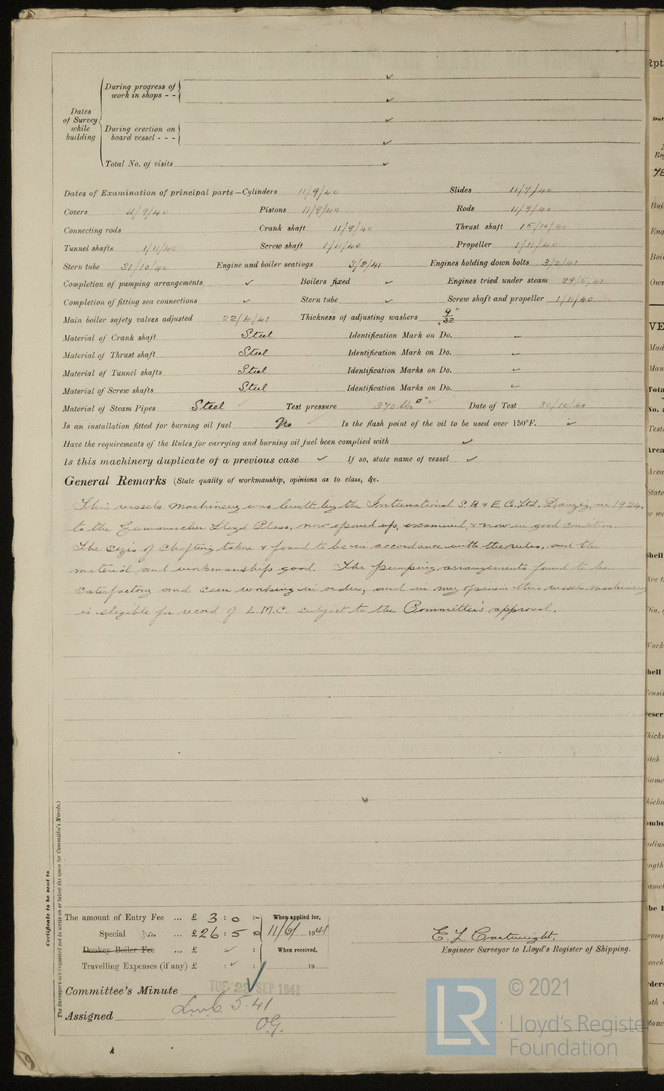 During progress of
work in shops - - ✓
Dates
of Survey
while
building
During erection on
board vessel - - - ✓
Total No. of visits ✓
Dates of Examination of principal parts—Cylinders 11/9/40 Slides 11/9/40
Covers 11/9/40 Pistons 11/9/40 Rods 11/9/40
Connecting rods Crank shaft 11/9/40 Thrust shaft 15/10/40
Tunnel shafts 1/11/40 Screw shaft 1/11/40 Propeller 1/11/40
Stern tube 31/10/40 Engine and boiler seatings 3/2/41 Engines holding down bolts 3/2/41
Completion of pumping arrangements ✓ Boilers fixed ✓ Engines tried under steam
Completion of fitting sea connections ✓ Stern tube ✓ Screw shaft and propeller 1/11/40
Main boiler safety valves adjusted 22/4/41 Thickness of adjusting washers 9/32"
Material of Crank shaft Steel Identification Mark on Do. ✓
Material of Thrust shaft Steel Identification Mark on Do. ✓
Material of Tunnel shafts Steel Identification Marks on Do. ✓
Material of Screw shafts Steel Identification Marks on Do. ✓
Material of Steam Pipes Steel ✓ Test pressure 370 lbs □" Date of Test 30/10/40
Is an installation fitted for burning oil fuel No ✓ Is the flash point of the oil to be used over 150°F. ✓
Have the requirements of the Rules for carrying and burning oil fuel been complied with ✓
Is this machinery duplicate of a previous case ✓ If so, state name of vessel ✓
General Remarks (State quality of workmanship, opinions as to class, &c.
This vessels machinery was built by the International S.B. & E. Co. Ltd. Danzig, in 1924,
to the Germanischer Lloyd Class, now opened up, examined, & now in good condition.
The sizes of shafting taken & found to be in accordance with the rules, and the
material and workmanship good. The pumping arrangements found to be
satisfactory and seen working in order, and in my opinion this vessels machinery
is eligible for record of L.M.C. subject to the Committee's approval.
Certificate to be sent to
The Surveyors are requested not to write on or below the space for Committee's Minute.
The amount of Entry Fee ... £ 3 : 0 : - When applied for,
Special ... £ 26 : 5 : 0 11/6/1941
Donkey Boiler Fee ... £ When received,
Travelling Expenses (if any) £ 19
E. L. Cartwright.
Engineer Surveyor to Lloyd's Register of Shipping.
Committee's Minute TUE. SEP 1941
Assigned LMC 5.41
© 2021
Lloyd's Registe
Foundation